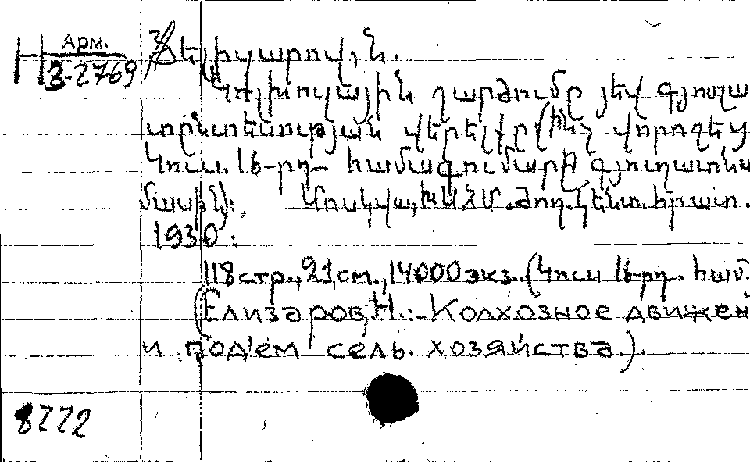 Арм.
3-2769
Յելիզարով, Ն.
Կոլխոզային շարժումը յեվ գյուղա
տընտեսության վերելքը (ինչ վորոշեց
Կուս. 16-րդ համագումարը գյուղատնտ
մասին): Մոսկվա, ԽՍՀՄ. Ժող. Կենտ. հրատ.
1930:
118 стр., 21 см., 14000 экз. (Կուս 16-րդ. համ.
(Елизаров, Н.:-Колхозное движен
и под'ем сель. хозяйства.).
8772